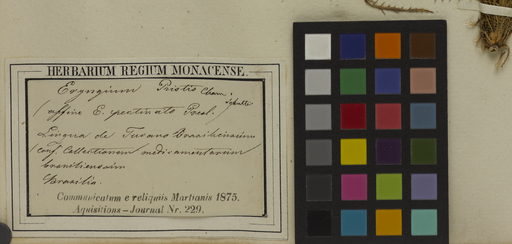 HERBARIUM REGIUM MONACENSE.
Eryngium Pristis Cham. Schultz
(affine E. pectinato Presl.
Lingua de Tucano Brasiliensium
(conf. Collectionem medicamentarium
brasiliensium
Brasilia.
Communicatum e reliquiis Martianis 1875.
Aquisitions-Journal Nr. 229.